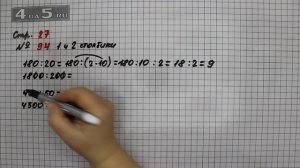 4 на 5.ru
Стр. 27
№ 94 1 и 2 столбики
180:20=180:(2·10)=180:10:2=18:2=9
1800:200=
4500: